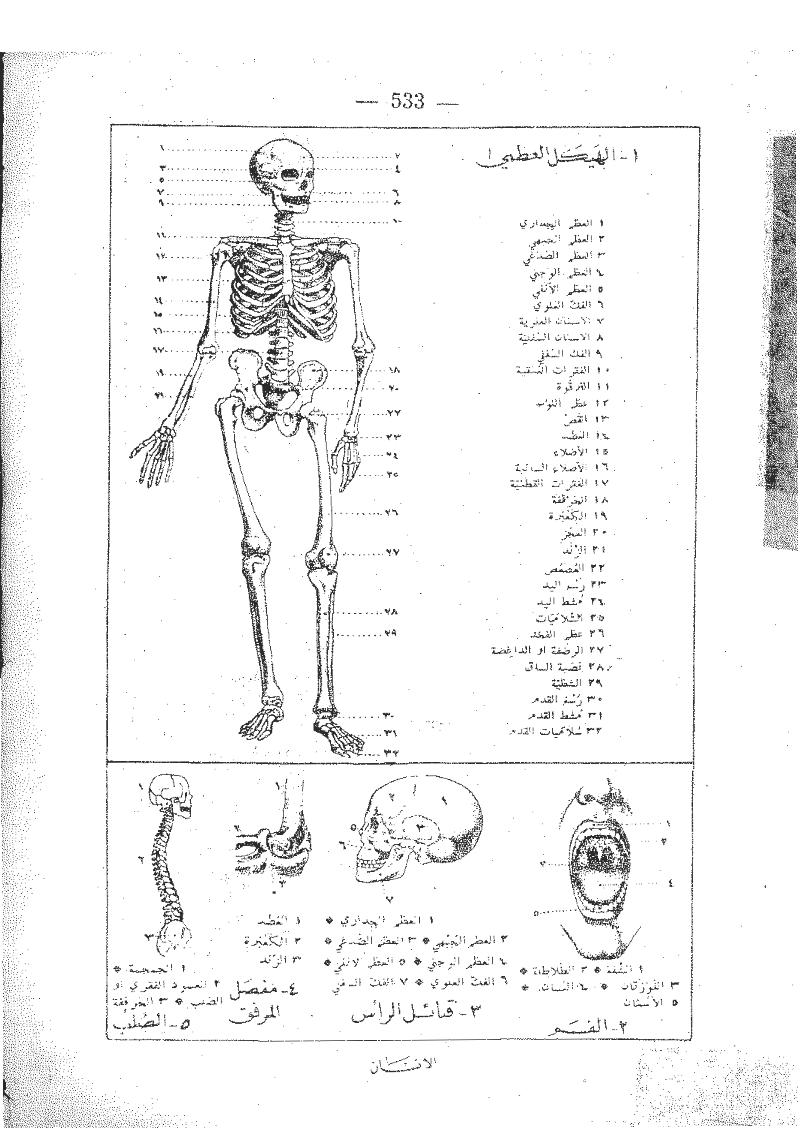 — 533 —
١ - الهَيكَل العَظمي
١ العظم الجداري
٢ العظم الجبهي
٣ العظم الصُدغي
٤ العظم الوجني
٥ العظم الأنفي
٦ الفك العلوي
٧ الاسنان العلوية
٨ الاسنان السُفليّة
٩ الفك السُفلي
١٠ الفقرات العُنقية
١١ التَرقُوة
١٢ عظم اللوح
١٣ القَصّ
١٤ العَضُد
١٥ الأضلاع
١٦ الأضلاع السائبة
١٧ الفقرات القَطَنيّة
١٨ الحَرقَفة
١٩ الكُعْبُرة
٢٠ العَجُز
٢١ الزَنْد
٢٢ العُصعُص
٢٣ رُسْغ اليد
٢٤ مُشط اليد
٢٥ السُّلامَيات
٢٦ عظم الفخذ
٢٧ الرضفة او الداغِصة
٢٨ قصبة الساق
٢٩ الشظيّة
٣٠ رُسْغ القدم
٣١ مُشط القدم
٣٢ سُلاميات القدم
١ الشَّفة * ٢ الطُلاطِلة *
٣ اللَوزتان * ٤ اللسان *
٥ الأسنان
٢ - الفَم
١ العظم الجداري *
٢ العظم الجَبْهي * ٣ العظم الصُدغي *
٤ العظم الوجني * ٥ العظم الانفي *
٦ الفك العلوي * ٧ الفك السفلي
٣ - قبائل الرأس
١ العَضُد
٢ الكُعْبُرة
٣ الزَنْد
٤ - مَفصَل
المرفق
١ الجمجمة *
٢ العمود الفقري او
الصُلب * ٣ الحرقفة
٥ - الصُّلب
الانسَان